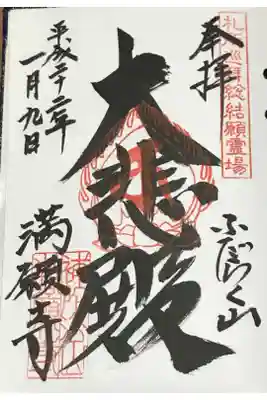 札所巡拝総結願霊場
奉拝
ふだらく山
大悲殿
満願寺
平成二十二年
一月九日